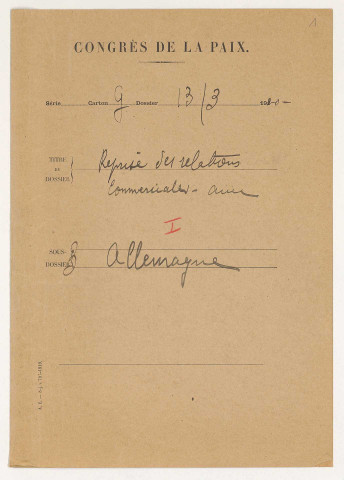 1
CONGRÈS DE LA PAIX.
Série Carton G Dossier 13/3
TITRE DU DOSSIER Reprise des relations
Commerciales - avec
I
SOUS-DOSSIER Allemagne